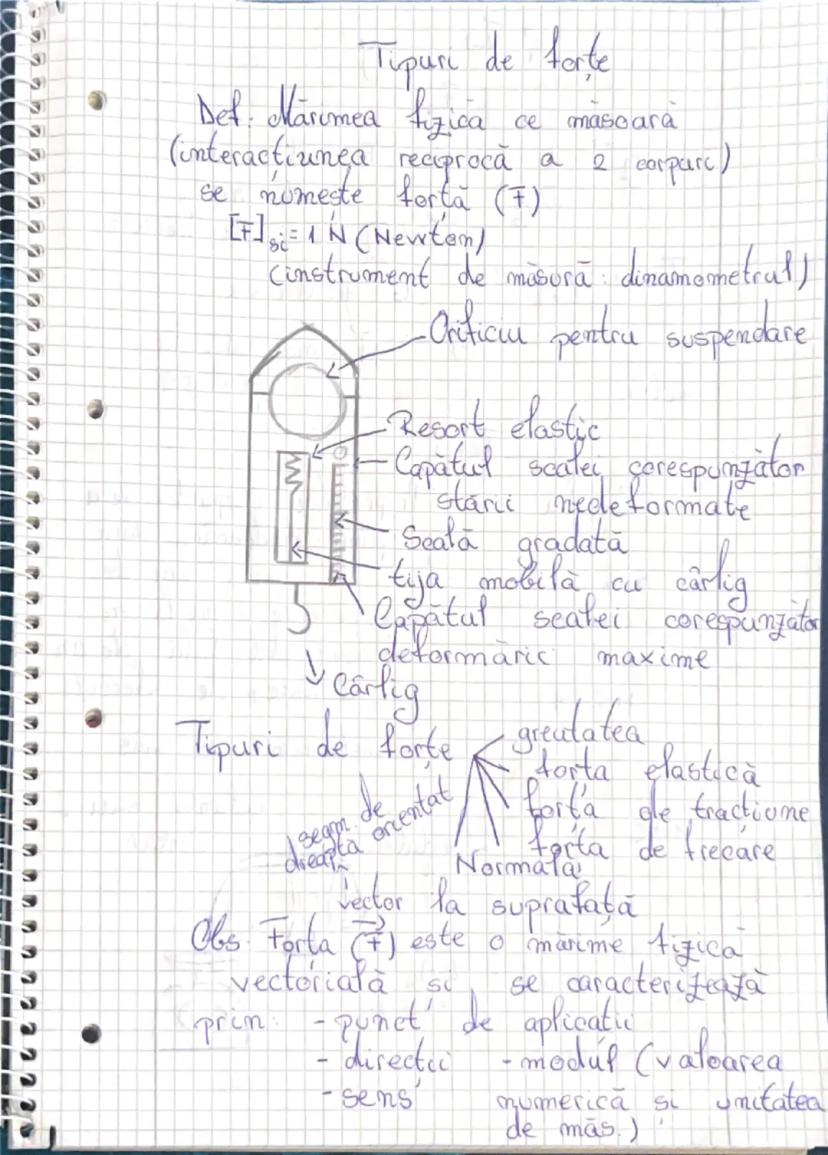 Tipuri de forțe
Def. Mărimea fizică ce măsoară
(interacțiunea reciprocă a 2 corpuri)
se numește forță (F)
[F]si = 1 N (Newton)
(instrument de măsură: dinamometrul)
Orificiu pentru suspendare
Resort elastic
Capătul scalei corespunzător
stării nedeformate
Scală gradată
tija mobilă cu cârlig
Capătul scalei corespunzător
deformării maxime
Cârlig
Tipuri de forțe
greutatea
forța elastică
forța de tracțiune
forța de frecare
Normala
la suprafață
segm. de
dreaptă orientat
vector
Obs. Forța (F⃗) este o mărime fizică
vectorială și se caracterizează
prin: - punct de aplicații
- direcții - modul (valoarea
- sens numerică și unitatea
de măs.)